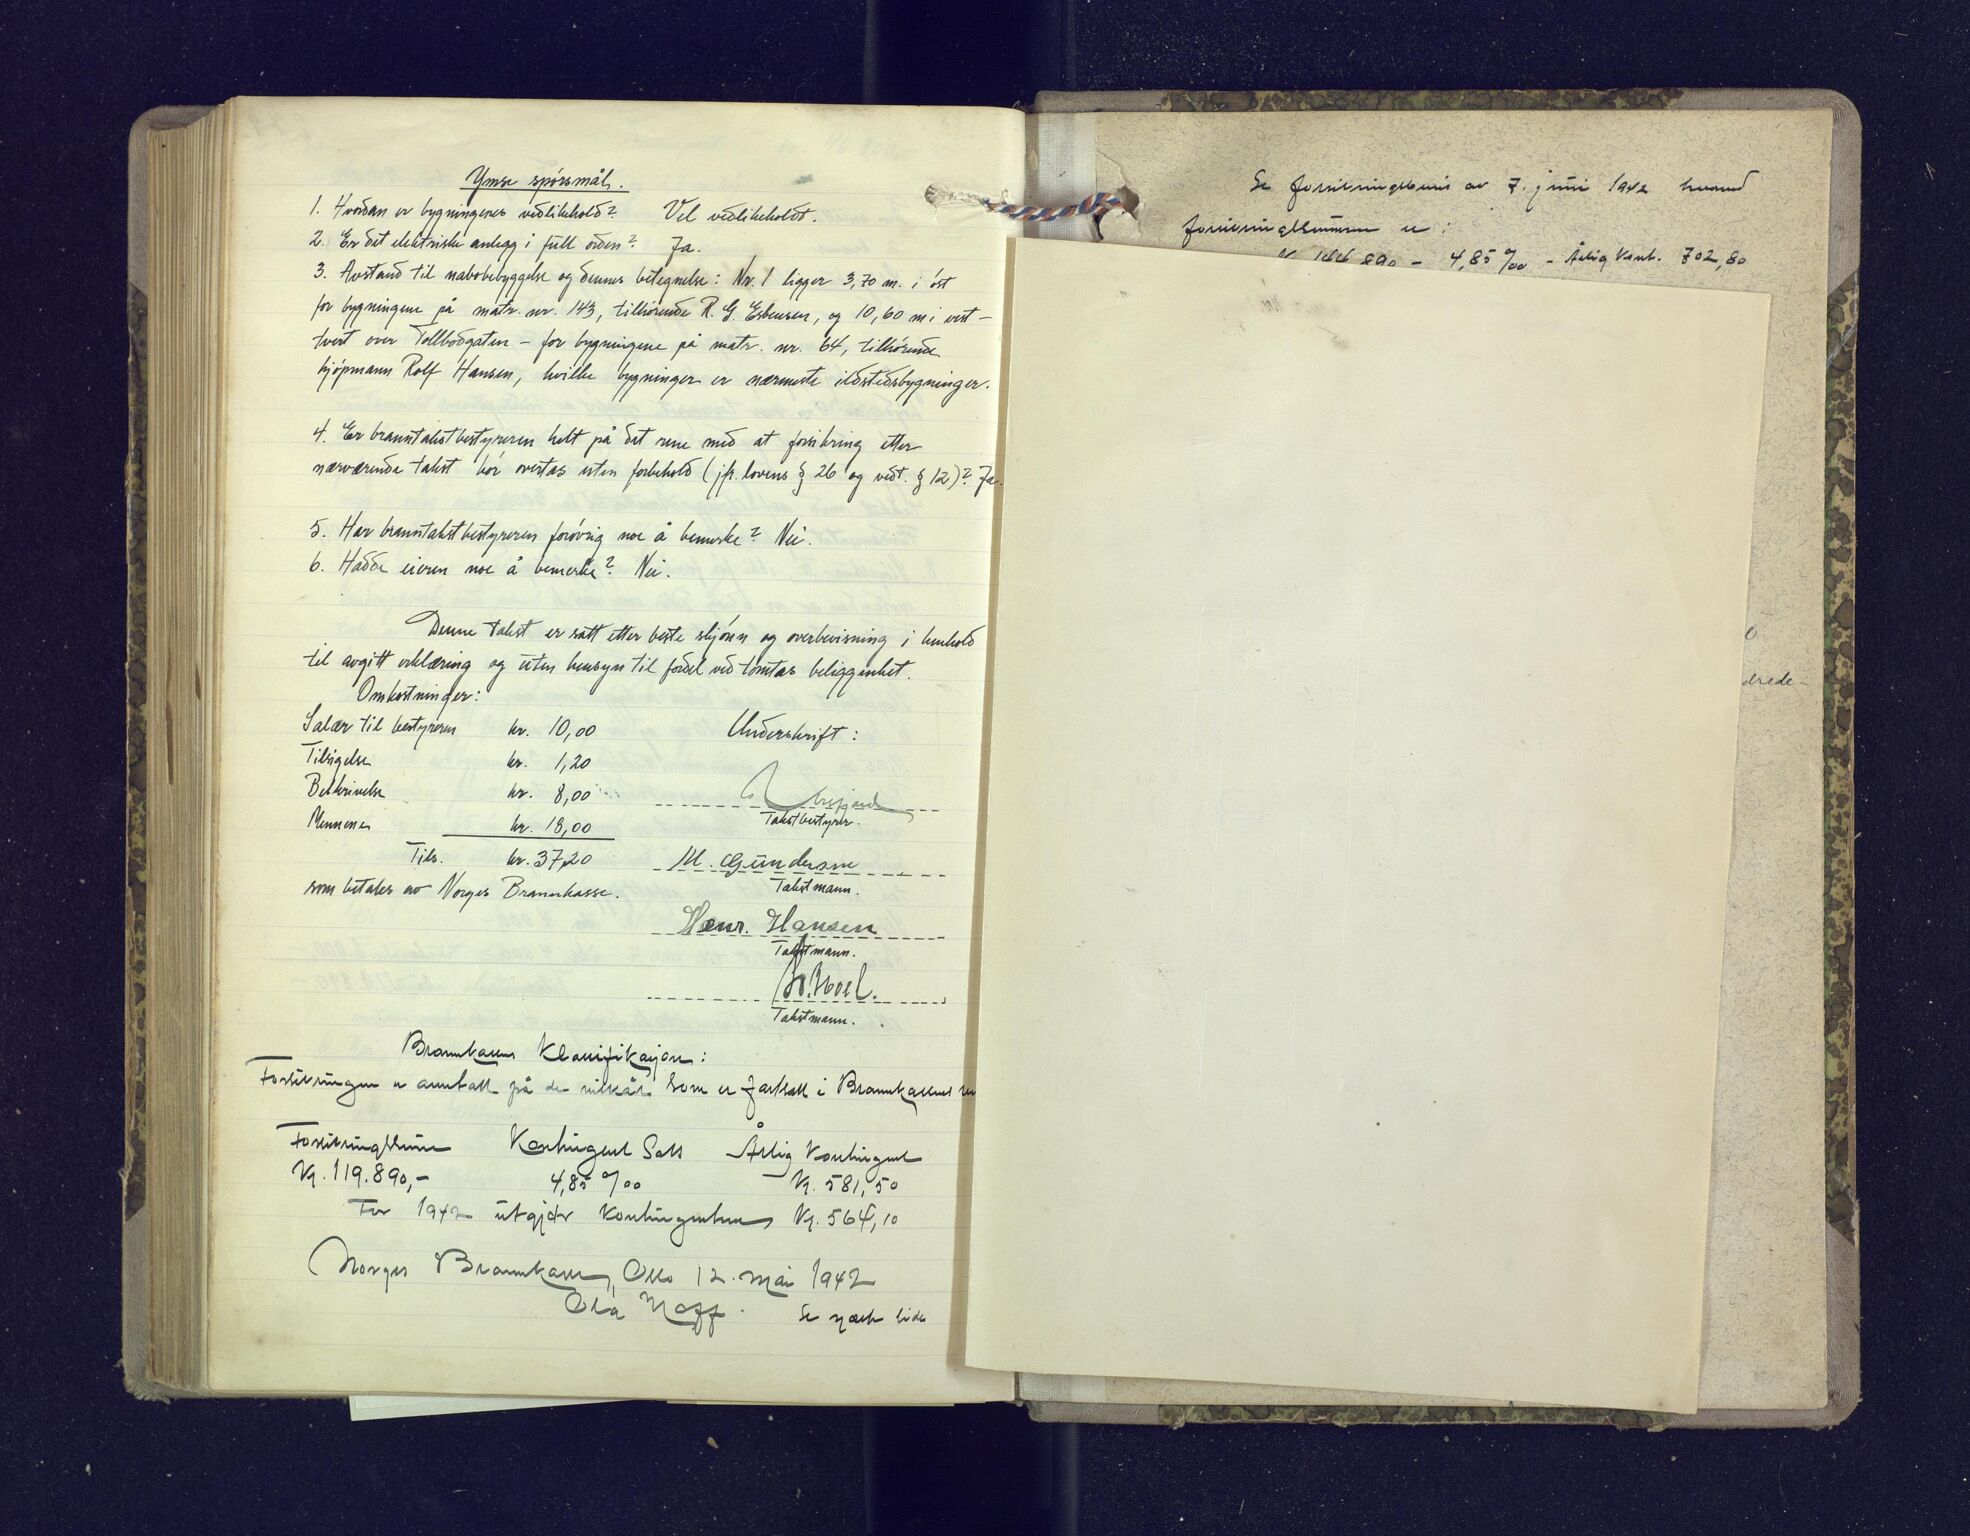 Ymse spörsmål.
1. Hvordan er bygningenes vedlikehold? Vel vedlikeholdt.
2. Er det elektriske anlegg i full orden? Ja.
3. Avstand til nabobebyggelse og dennes betegnelse: Nr. 1 ligger 3,70 m. i öst
for bygningene på matr. nr. 143, tilhörende R. G. Esbensen, og 10,60 m i vest –
tvert over Tollbodgaten – for bygningene på matr. nr. 64, tilhörende
kjöpmann Rolf Hansen, hvilke bygninger er nærmeste ildstedsbygninger.
4. Er branntakstbestyreren helt på det rene med at forsikring etter
nærværende takst bör overtas uten forbehold (jfr. lovens § 26 og vedt. § 12)? Ja.
5. Har branntakstbestyreren forövrig noe å bemerke? Nei.
6. Hadde eieren noe å bemerke? Nei.
Denne takst er satt etter beste skjönn og overbevisning i henhold
til avgitt erklæring og uten hensyn til fordel ved tomtas beliggenhet.
Omkostninger:
Salær til bestyreren kr. 10,00
Underskrift:
Tilsigelse kr. 1,20
Beskrivelse kr. 8,00
Takstbestyrer.
Mennene kr. 18,00
Tils. kr. 37,20
M. Gundersen
Takstmann.
som betales av Norges Brannkasse.
Henr. Hansen
Takstmann.
Takstmann.
Brannkassens Klassifikasjon:
Forsikringen er antatt på de vilkår som er fastsatt i Brannkassens
Forsikringssum Kontingent Sats Årlig Kontingent
Kr. 119.890,- 4,85 o/oo Kr. 581,50
For 1942 utgjör kontingenten Kr. 564,10
Norges Brannkasse, Oslo 12. mai 1942
Ola
Se næste side
Se forsikringsbevis av 7. juni 1942 hvorved
forsikringssummen er:
890 – 4,85 o/oo – Årlig Kont. 702,80
drede-